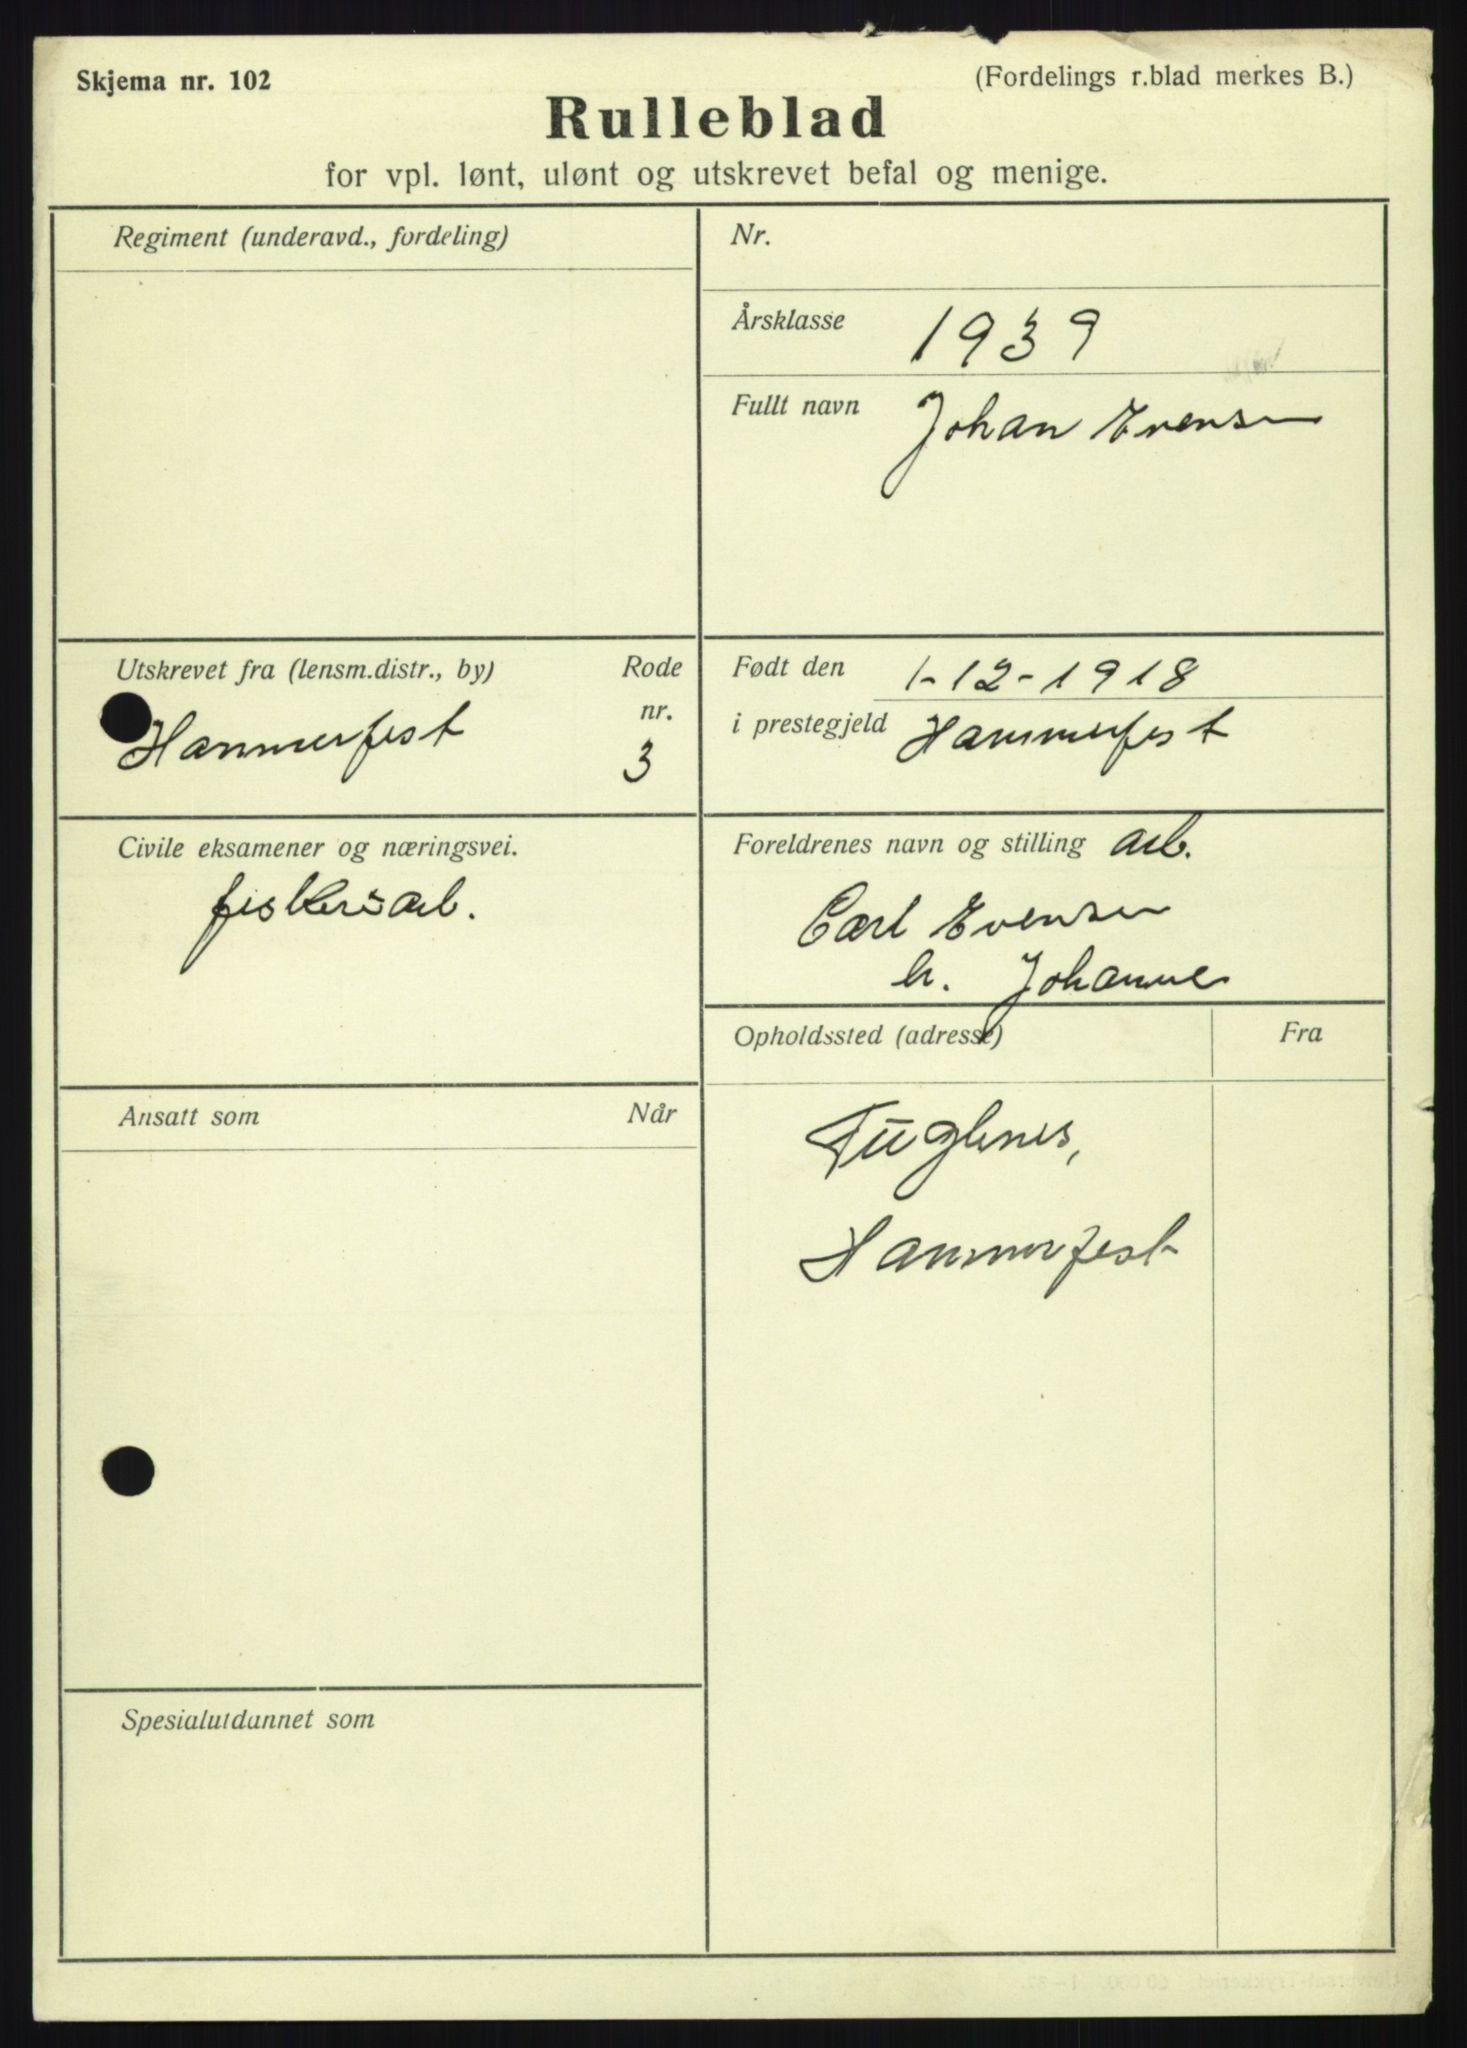 Skjema nr. 102
(Fordelings r.blad merkes B.)
Rulleblad
for vpl. lønt, ulønt og utskrevet befal og menige.
Regiment (underavd., fordeling)
Nr.
Årsklasse 1939
Fullt navn Johan Evensen
Utskrevet fra (lensm.distr., by) Rode
nr.
Hammerfest 3
Født den 1-12-1918
i prestegjeld Hammerfest
Civile eksamener og næringsvei.
fiskeriarb.
Foreldrenes navn og stilling arb.
Carl Evensen
h. Johanne
Opholdssted (adresse) Fra
Fuglenes,
Hammerfest
Ansatt som Når
Spesialutdannet som